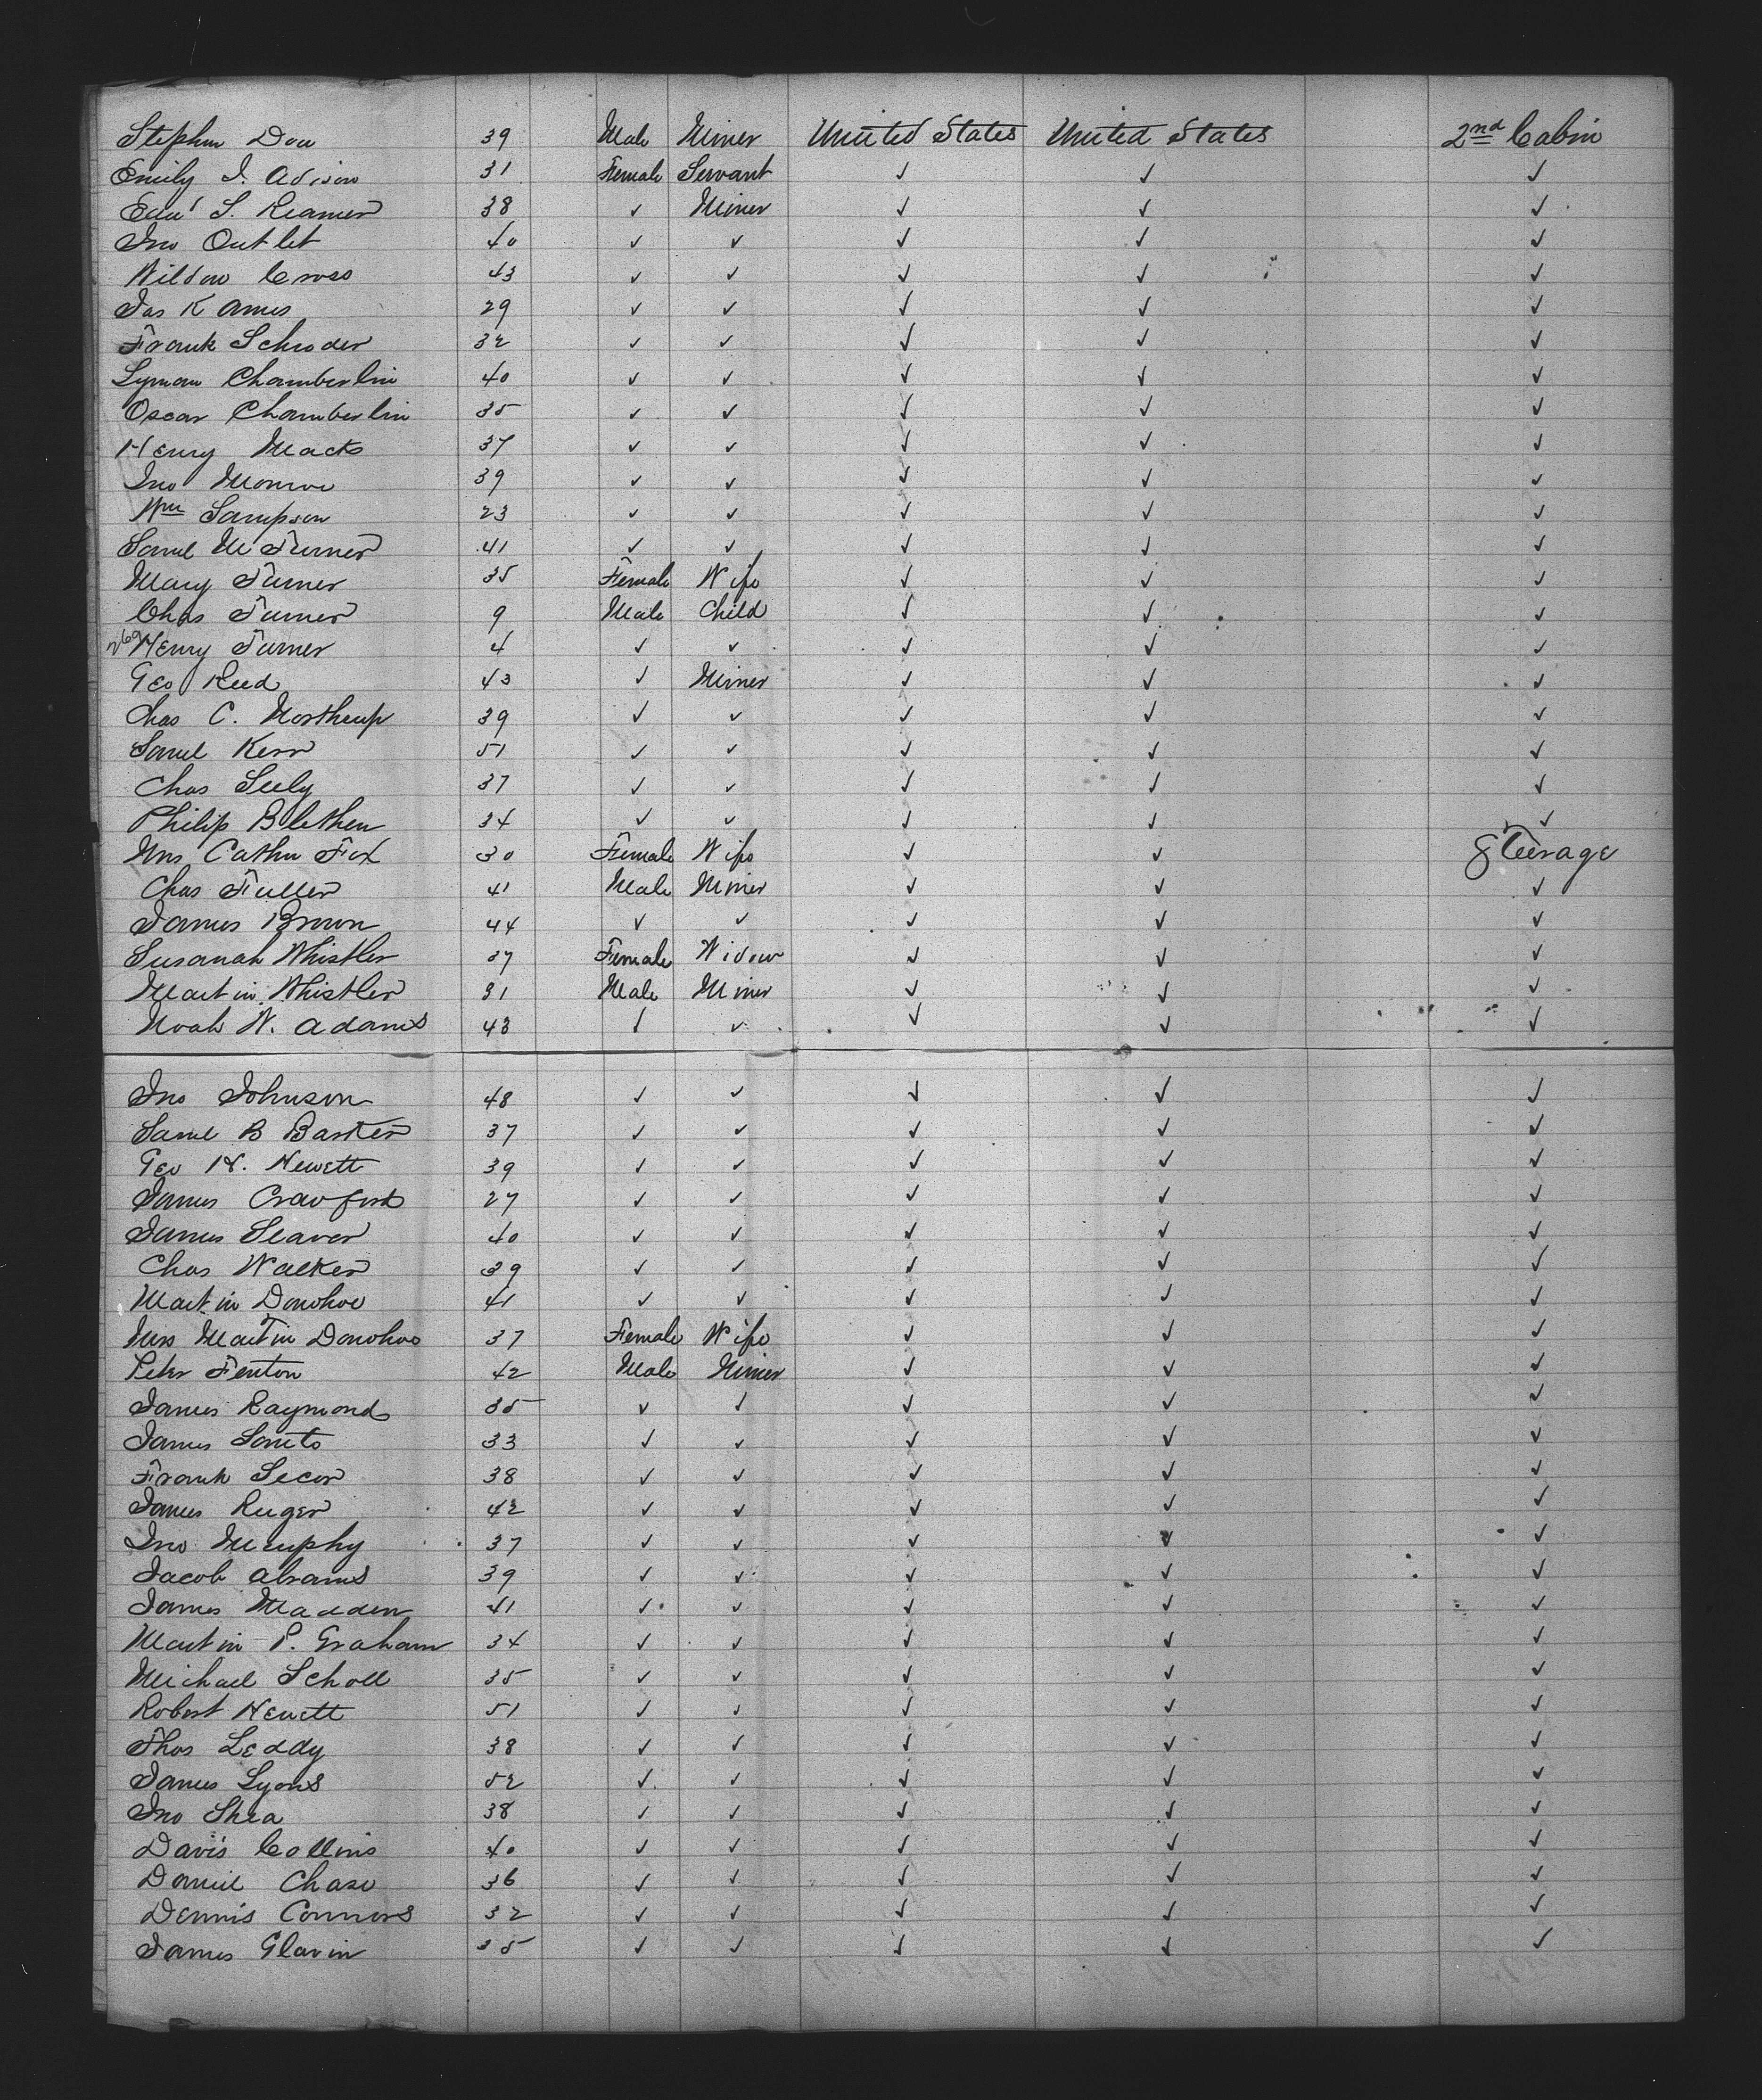 Stephen Dow 39 Male Miner United States United States 2nd Cabin
Emily I. Adison 31 Female Servant ✓ ✓ ✓
Edw'd S. Reamer 38 ✓ Miner ✓ ✓ ✓
Jno Outlet 40 ✓ ✓ ✓ ✓ ✓
Wildow Cross 43 ✓ ✓ ✓ ✓ ✓
Jas K Ames 29 ✓ ✓ ✓ ✓ ✓
Frank Schroder 32 ✓ ✓ ✓ ✓ ✓
Lyman Chamberlin 40 ✓ ✓ ✓ ✓ ✓
Oscar Chamberlin 35 ✓ ✓ ✓ ✓ ✓
Henry Macks 37 ✓ ✓ ✓ ✓ ✓
Jno Monroe 39 ✓ ✓ ✓ ✓ ✓
Wm Sampson 23 ✓ ✓ ✓ ✓ ✓
Saml M Turner 41 ✓ ✓ ✓ ✓ ✓
Mary Turner 35 Female Wife ✓ ✓ ✓
Chas Turner 9 Male Child ✓ ✓ ✓
Henry Turner 4 ✓ ✓ ✓ ✓ ✓
Geo Reed 43 ✓ Miner ✓ ✓ ✓
Chas C. Northrup 39 ✓ ✓ ✓ ✓ ✓
Saml Kerr 51 ✓ ✓ ✓ ✓ ✓
Chas Seely 37 ✓ ✓ ✓ ✓ ✓
Philip Blethen 34 ✓ ✓ ✓ ✓ ✓
Mrs Cathn Fox 30 Female Wife ✓ ✓ Steerage
Chas Fuller 41 Male Miner ✓ ✓ ✓
James Brown 44 ✓ ✓ ✓ ✓ ✓
Susanah Whistler 37 Female Widow ✓ ✓ ✓
Martin Whistler 31 Male Miner ✓ ✓ ✓
Noah W. Adams 43 ✓ ✓ ✓ ✓ ✓
Jno Johnson 48 ✓ ✓ ✓ ✓ ✓
Saml B Barker 37 ✓ ✓ ✓ ✓ ✓
Geo H. Hewett 39 ✓ ✓ ✓ ✓ ✓
James Crawford 27 ✓ ✓ ✓ ✓ ✓
James Seaver 40 ✓ ✓ ✓ ✓ ✓
Chas Walker 39 ✓ ✓ ✓ ✓ ✓
Martin Donohoe 41 ✓ ✓ ✓ ✓ ✓
Mrs Martin Donohoe 37 Female Wife ✓ ✓ ✓
Peter Fenton 42 Male Miner ✓ ✓ ✓
James Raymond 35 ✓ ✓ ✓ ✓ ✓
James 33 ✓ ✓ ✓ ✓ ✓
Frank Secor 38 ✓ ✓ ✓ ✓ ✓
James Ruger 42 ✓ ✓ ✓ ✓ ✓
Jno Murphy 37 ✓ ✓ ✓ ✓ ✓
Jacob Abrams 39 ✓ ✓ ✓ ✓ ✓
James Madden 41 ✓ ✓ ✓ ✓ ✓
Martin P. Graham 34 ✓ ✓ ✓ ✓ ✓
Michael Scholl 35 ✓ ✓ ✓ ✓ ✓
Robert Hewett 51 ✓ ✓ ✓ ✓ ✓
Thos Leddy 38 ✓ ✓ ✓ ✓ ✓
James Lyons 52 ✓ ✓ ✓ ✓ ✓
Jno Shea 38 ✓ ✓ ✓ ✓ ✓
David Collins 40 ✓ ✓ ✓ ✓ ✓
Daniel Chase 36 ✓ ✓ ✓ ✓ ✓
Dennis Connors 32 ✓ ✓ ✓ ✓ ✓
James Glavin 35 ✓ ✓ ✓ ✓ ✓